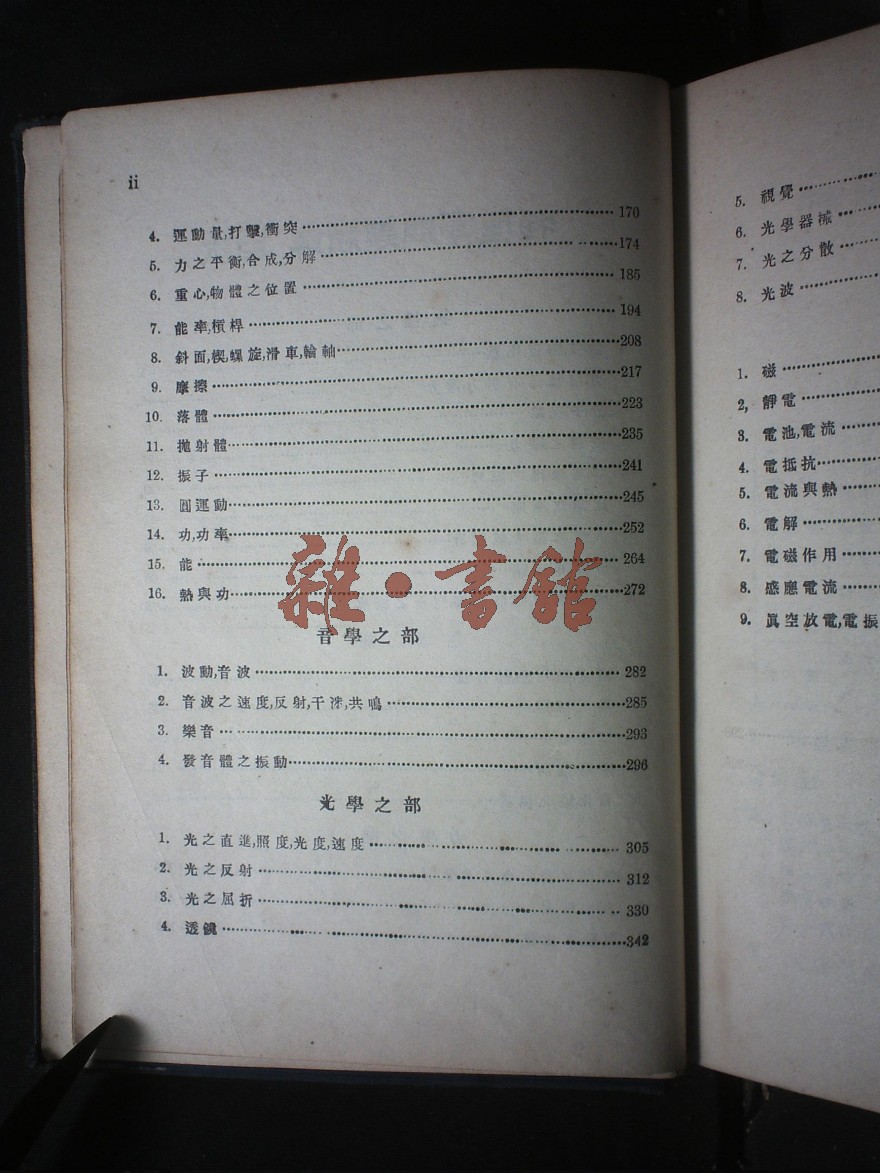 ii
4. 運動量,打擊,衝突 170
5. 力之平衡,合成,分解 174
6. 重心,物體之位置 185
7. 能率,槓桿 194
8. 斜面,楔,螺旋,滑車,輪軸 208
9. 摩擦 217
10. 落體 223
11. 拋射體 235
12. 振子 241
13. 圓運動 245
14. 功,功率 252
15. 能 264
16. 熱與功 272
雜•書館
音學之部
1. 波動,音波 282
2. 音波之速度,反射,干涉,共鳴 285
3. 樂音 293
4. 發音體之振動 296
光學之部
1. 光之直進,照度,光度,速度 305
2. 光之反射 312
3. 光之屈折 330
4. 透鏡 342
5. 視覺
6. 光學器械
7. 光之分散
8. 光波
1. 磁
2, 靜電
3. 電池,電流
4. 電抵抗
5. 電流與熱
6. 電解
7. 電磁作用
8. 感應電流
9. 眞空放電,電振